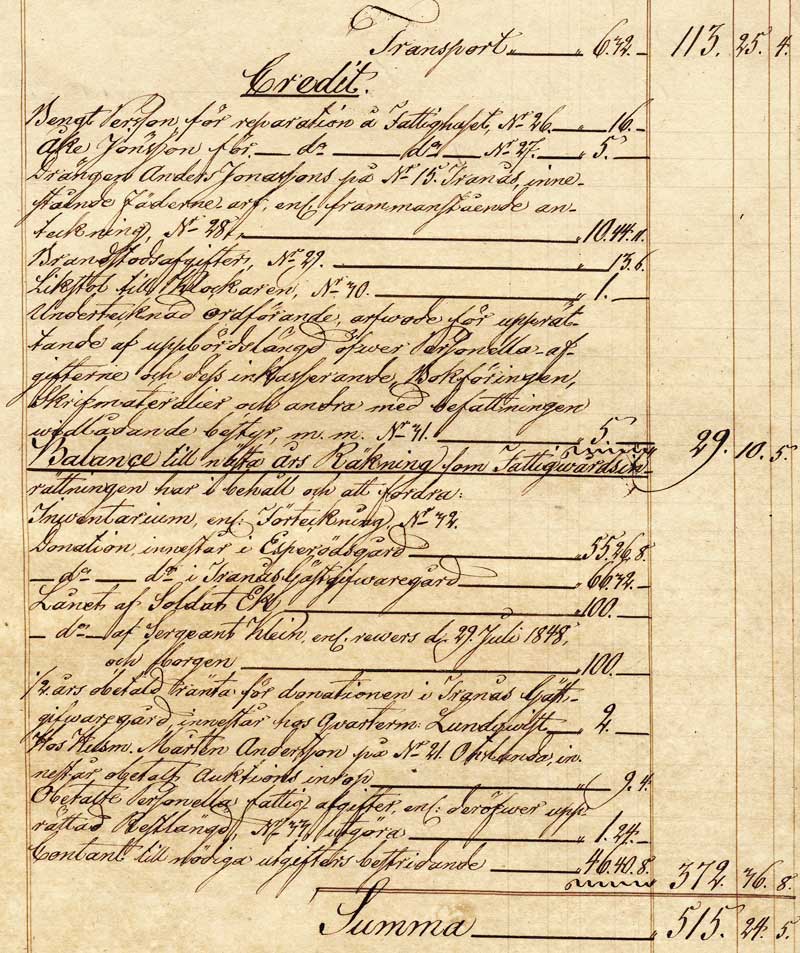 Transport „ 6.32.— 113. 25. 4.
Credit.
Bengt Persson för reparation å Fattighuset, Nr 26. „ 16.—
Åke Jönsson för — do — do — Nr 27. „ 5.—
Drängen Anders Jonassons på Nr 15. Tranås, inne-
stående Fäderne arf, enl. frammanstående an-
teckning, Nr 28. „ 10.44.11.
Brandstodsafgifter, Nr 29. „ 13.6.
Likstol till Klockaren, Nr 30. „ 1.—
Undertecknad ordförande, arfwode för upprät-
tande af uppbördslängd öfwer Personella af-
gifterne och dess inkasserande, Bokföringen,
Skrifmaterialier och andra med befattningen
wedlådande bestyr, m. m. Nr 31. „ 5.— 29. 10. 5.
Balance till nästa års Räkning, som Fattigwårdsin-
rättningen har i behåll och att fordra:
Inwentarium, enl. Förteckning, Nr 32.
Donation, innestår i Esperödsgård „ 55.26.8.
— do — do i Tranås Gästgifwaregård „ 66.32.—
Lånet af Soldat Ek „ 100.—
— do — af Sergeant Klein, enl. rewers d. 29 Juli 1848,
och borgen „ 100.—
1/2 års obetald ränta för donationen i Tranås Gäst-
gifwaregård, innestår hos Qvarterm. Lundqwist „ 2.—
Hos Husm. Mårten Andersson på Nr 21. in-
nestår obetalt Auktions inrop „ 9.4.
Obetalte Personella fattig afgifter, enl. deröfwer upp-
rättad Restlängd, Nr 33, utgöra „ 1.24.—
Contant till nödiga utgifters bestridande „ 46.40.8. 372. 36. 8.
Summa „ 515. 24. 5.